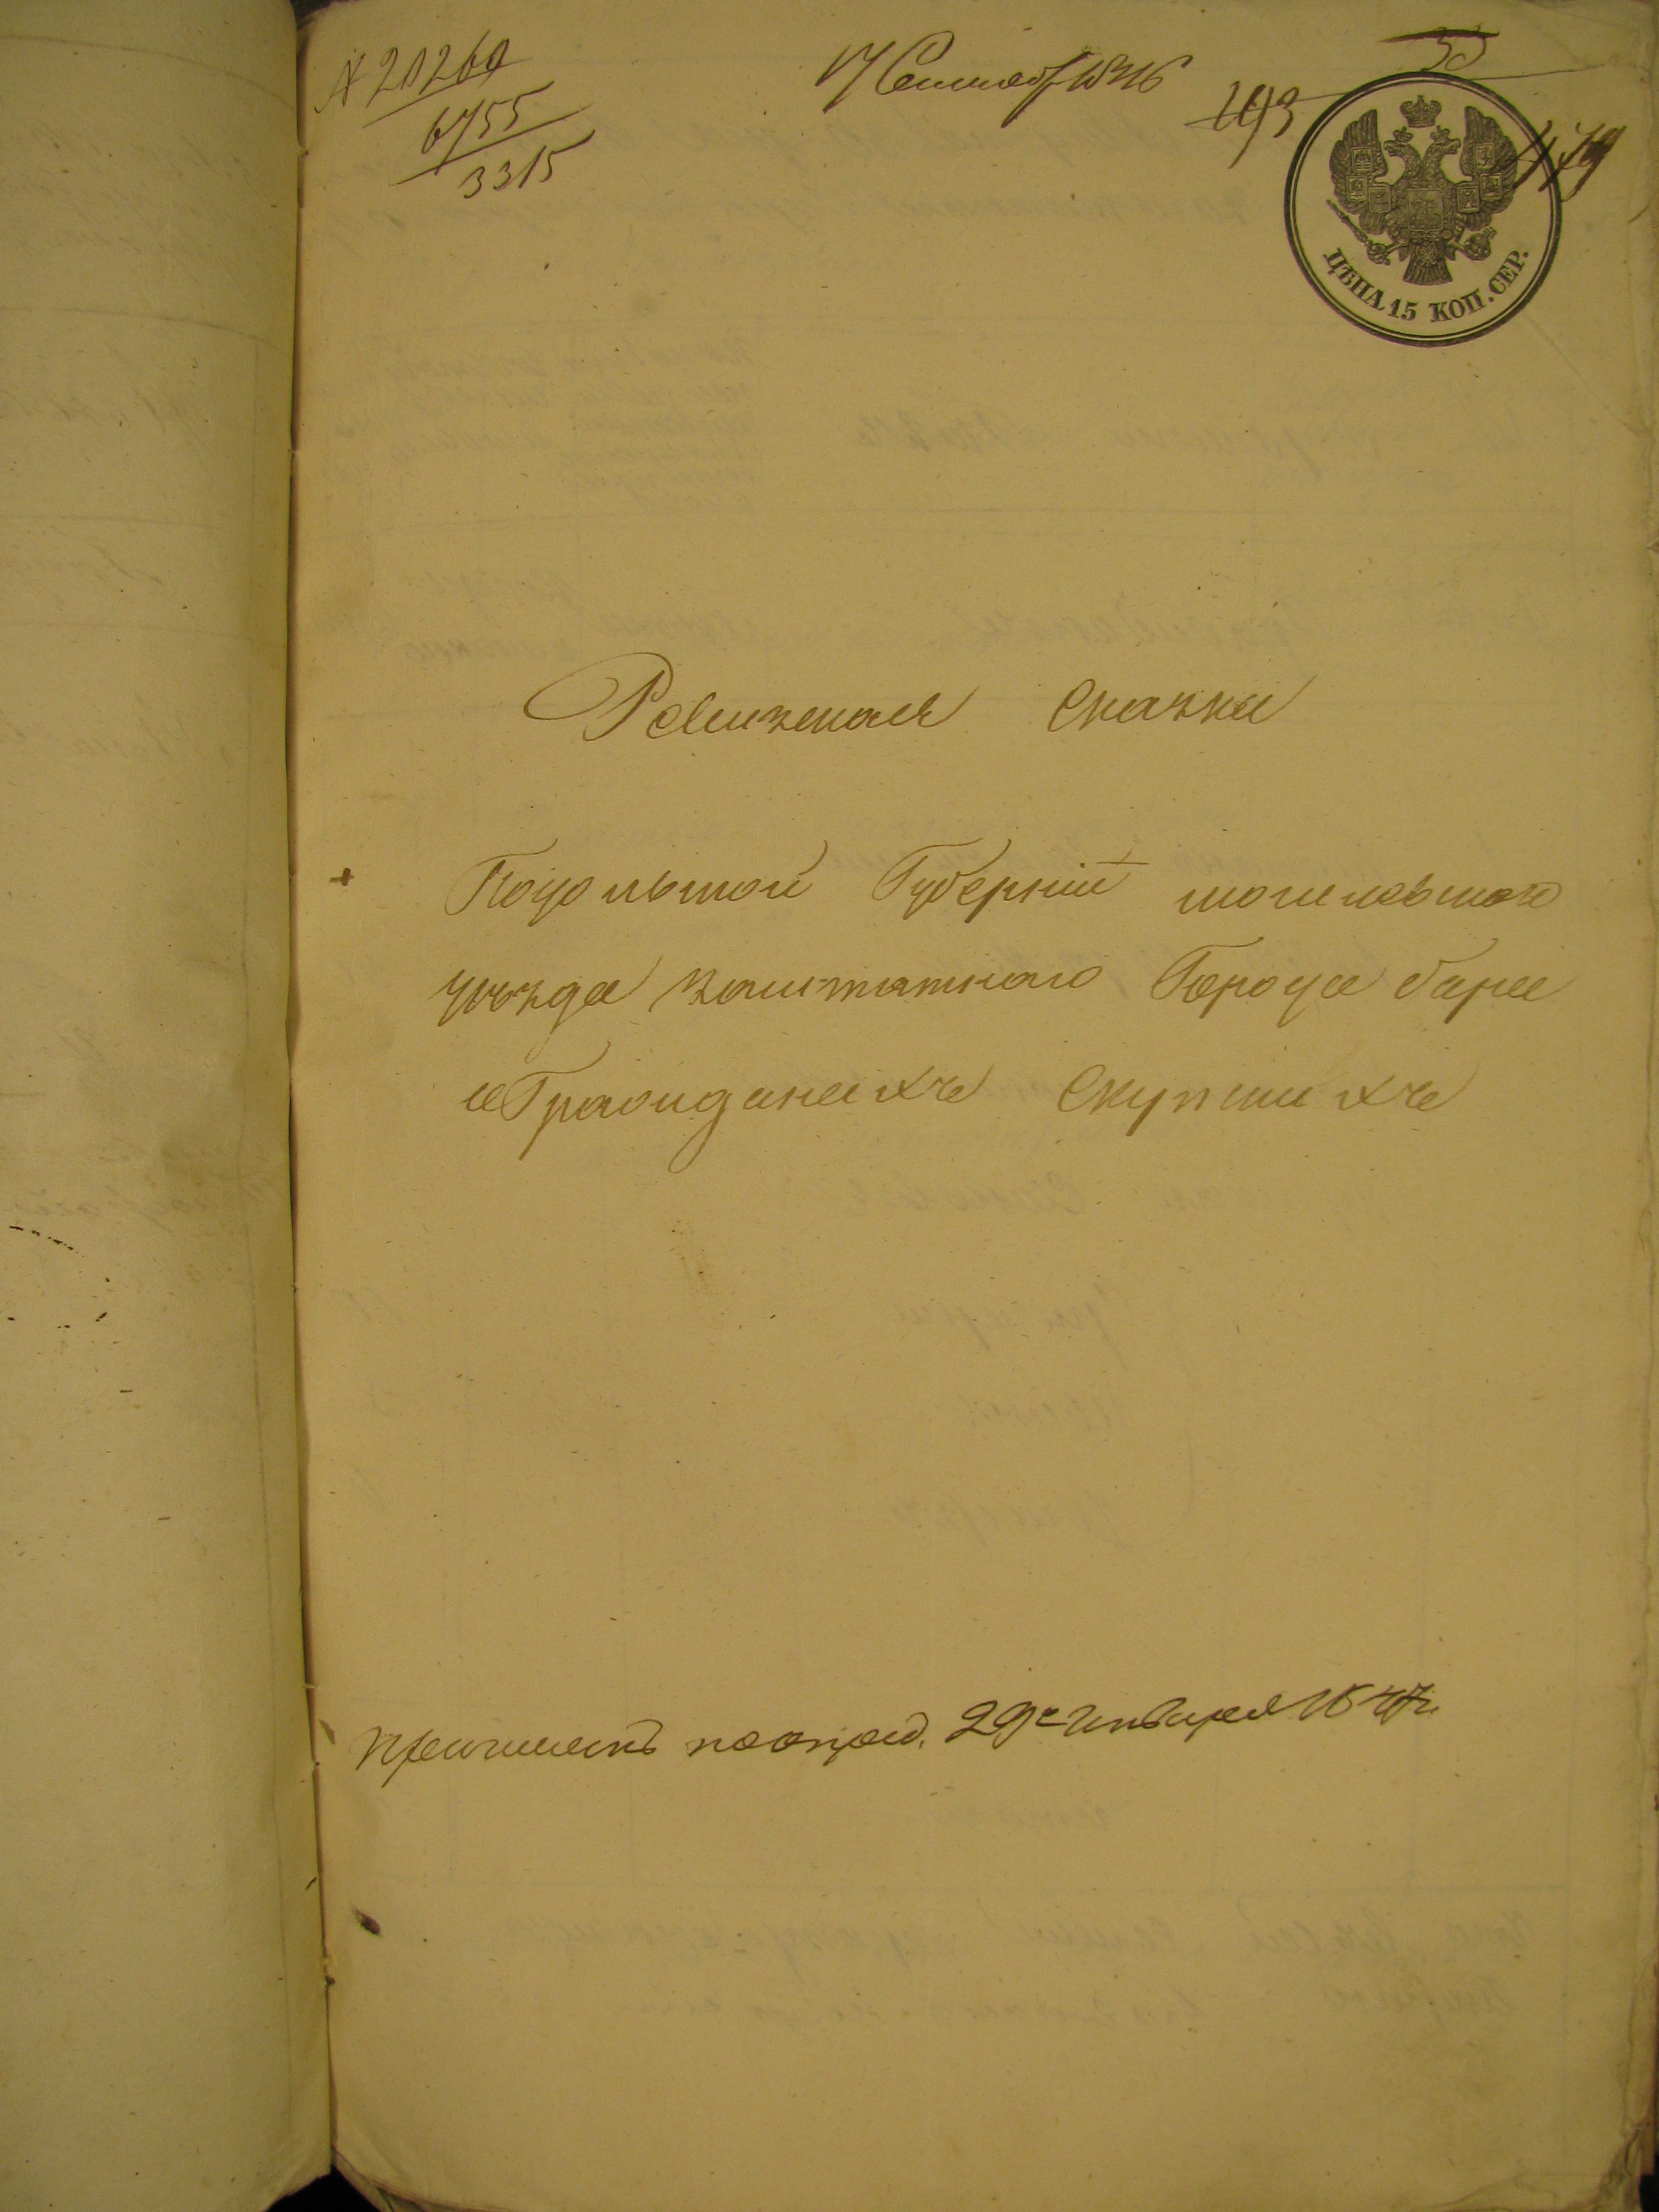 № 20260
6755
3315
17 Сентябр 1846
33
193
479
ЦѢНА 15 КОП. СЕР.
Ревизская Сказка
Подольской Губерніи могилевского
уезда заштатнаго Города бара
о Гражданахъ Скупи
по опред. 29го Января 1847г.